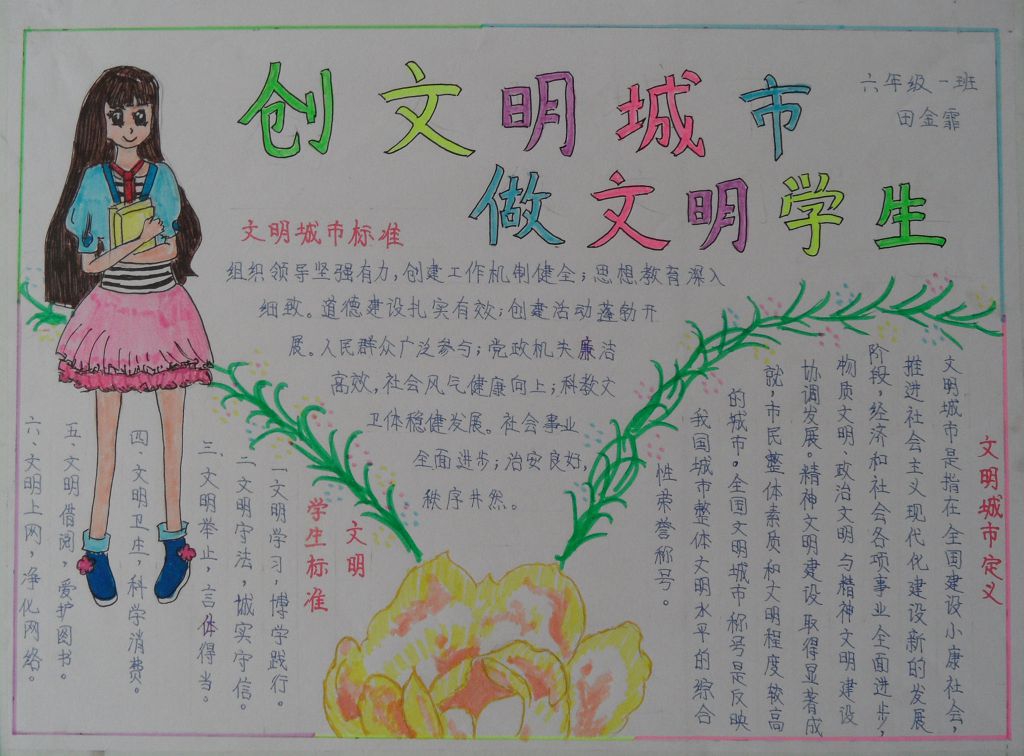 创文明城市
做文明学生
六年级一班
田金霏
文明城市标准
组织领导坚强有力,创建工作机制健全;思想教育深入
细致。道德建设扎实有效;创建活动蓬勃开
展。人民群众广泛参与;党政机关廉洁
高效,社会风气健康向上;科教文
卫体稳健发展。社会事业
全面进步;治安良好,
秩序井然。
文明城市定义
文明城市是指在全国建设小康社会,
推进社会主义现代化建设新的发展
阶段,经济和社会各项事业全面进步,
物质文明、政治文明与精神文明建设
协调发展。精神文明建设取得显著成
就,市民整体素质和文明程度较高
的城市。全国文明城市称号是反映
我国城市整体文明水平的综合
性荣誉称号。
文明
学生标准
一文明学习,博学践行。
二文明守法,城实守信。
三、文明举止,言体得当。
四、文明卫生,科学消费。
五、文明借阅,爱护图书。
六、文明上网,净化网络。